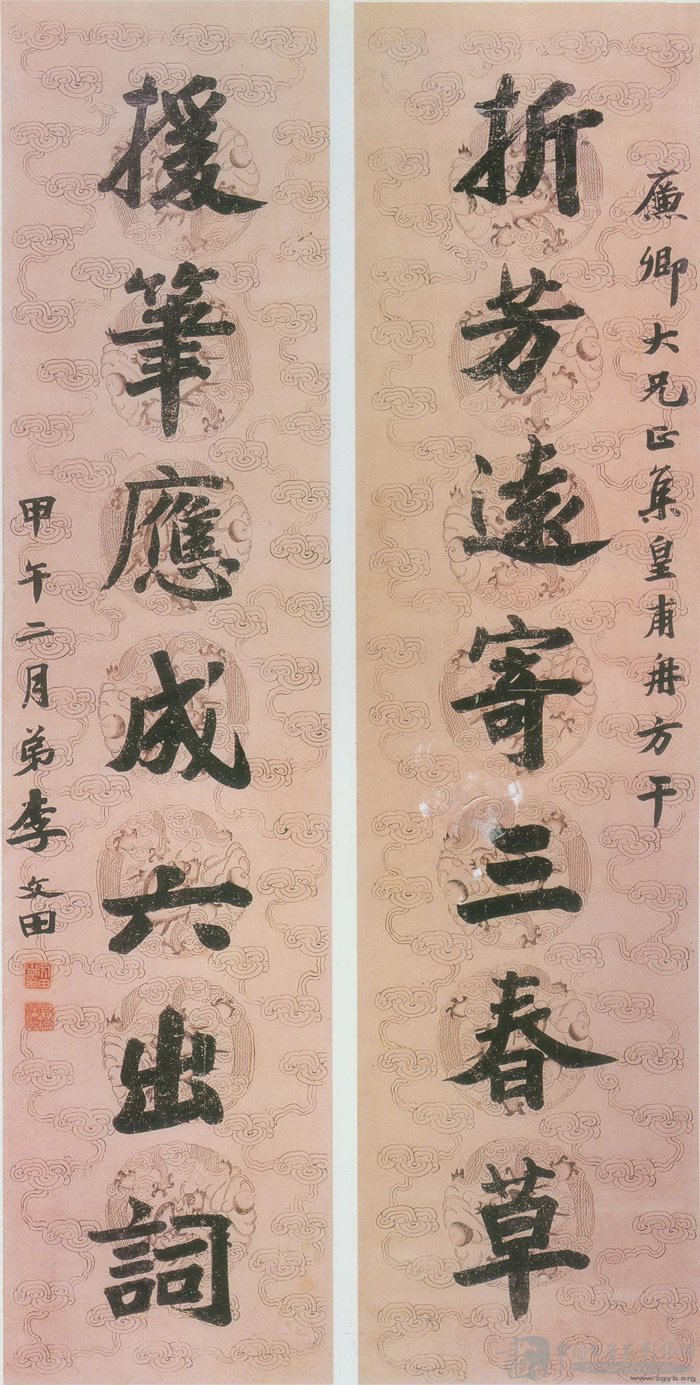 廉卿大兄正集皇甫冉方干
折芳遠寄三春草
援筆應成六出詞
甲午二月弟李文田
www.zgyb.org